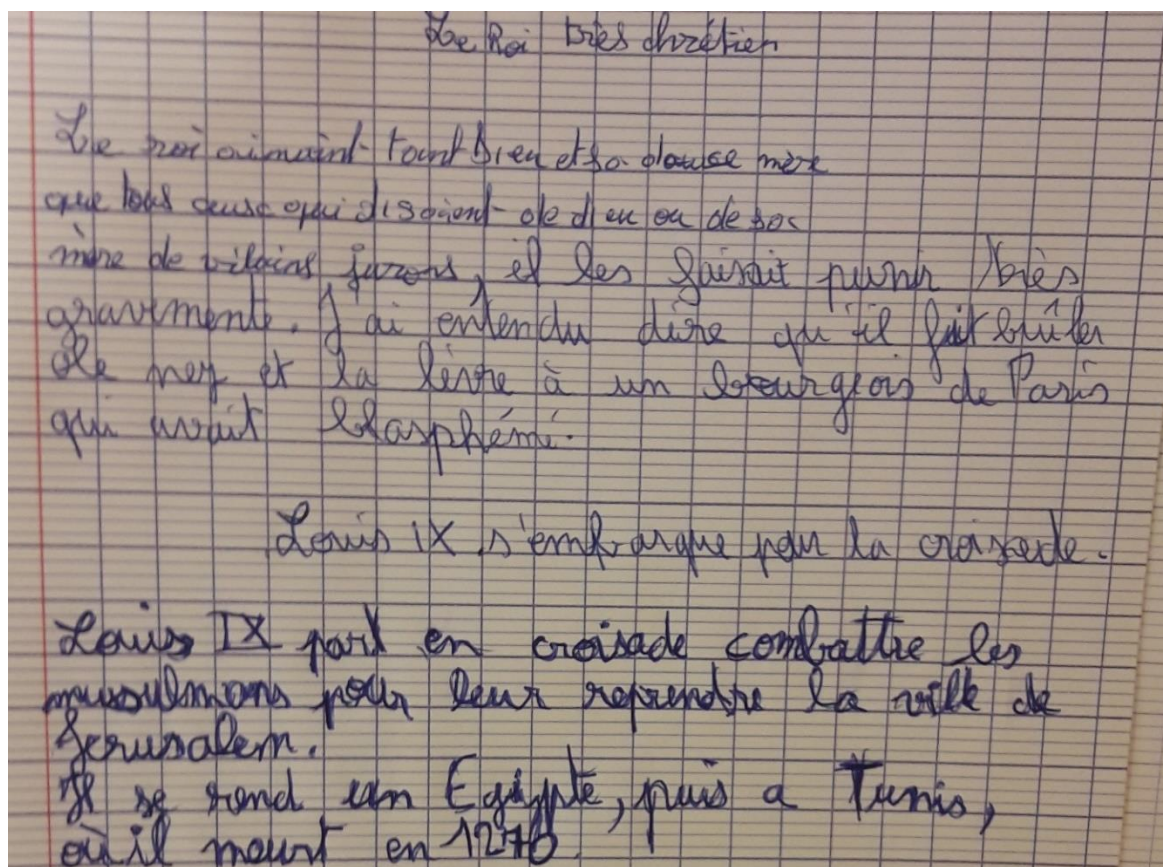 Le Roi très chrétien
Le roi aimaint tant Dieu et sa douse mère
que tous ceuse qui disaient de dieu ou de sa
mère de vilains jurons, il les faisait punir très
gravement. J'ai entendu dire qu'il fit brûler
le nez et la lèvre à un bourgeois de Paris
qui avait blasphémé.
Louis IX s'embarque pour la croisade.
Louis IX part en croisade combattre les
musulmans pour leur reprendre la ville de
Jerusalem.
Il se rend en Egypte, puis a Tunis,
où il meurt en 1270.